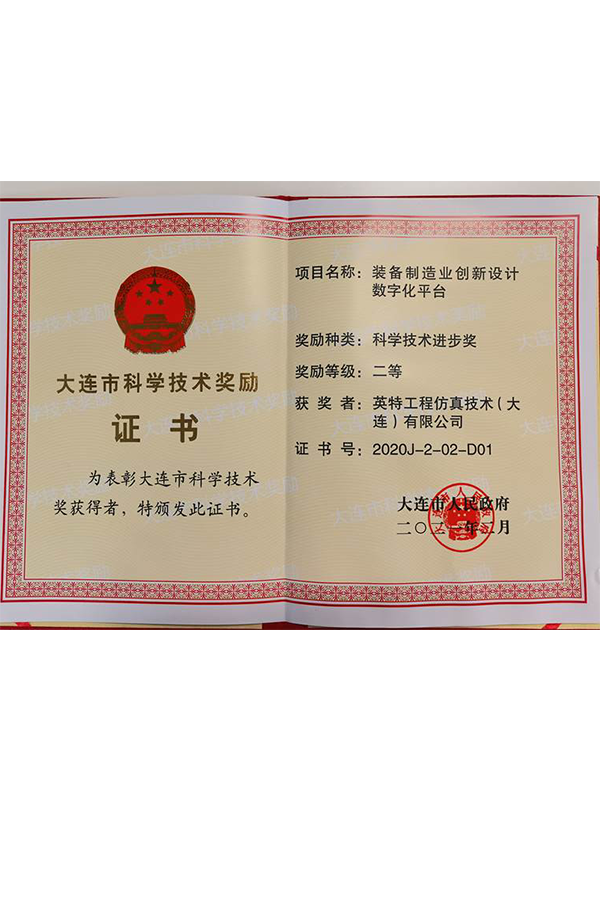 大连市科学技术奖励
证书
为表彰大连市科学技术
奖获得者，特颁发此证书。
项目名称：装备制造业创新设计
数字化平台
奖励种类：科学技术进步奖
奖励等级：二等
获奖者：英特工程仿真技术（大
连）有限公司
证书号：2020J-2-02-D01
大连市人民政府
二〇二一年二月